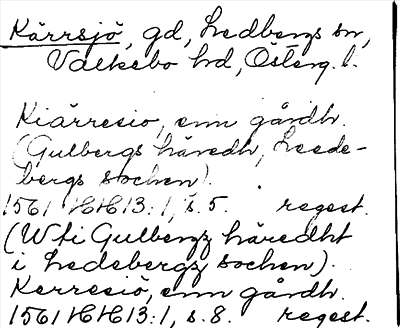 Kärrsjö, gd, Ledbergs sn,
Valkebo hd, Österg. l.
Kiärresiö, enn gårdh.
(Gulbergs häredh, Leede-
bergs sochen).
1561 HH 13:1, s. 5. regest.
(W ti Gulbergz häredht
i Ledebergz sochen).
Kerresiö, enn gårdh.
1561 HH 13:1, s. 8. regest.